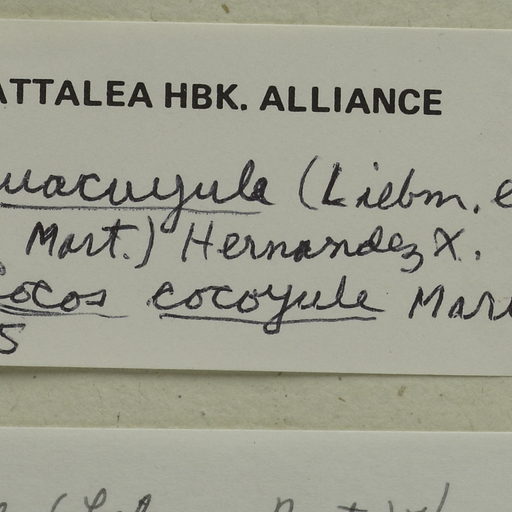 ATTALEA HBK. ALLIANCE
uacuyula (Liebm. e
Mart.) Hernandez X.
Cocos cocoyule Mar
5